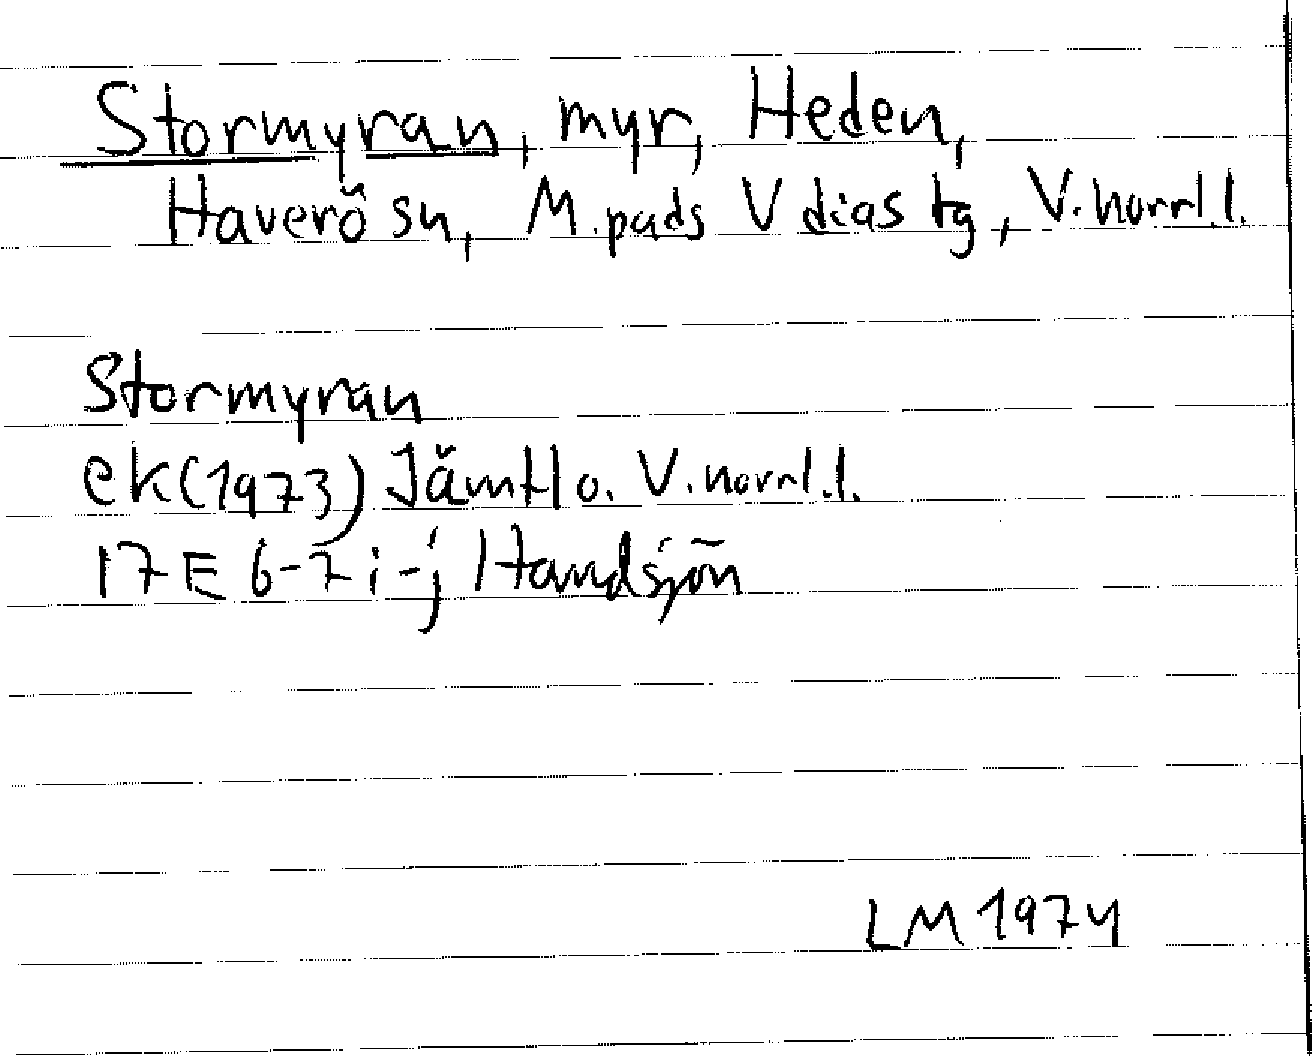 Stormyran, myr, Heden,
Haverö sn, M.pads V dias tg, V.norrl.l.
Stormyran
ek(1973) Jämtl o. V.norrl.l.
17E 6-7 i-j Handsjön
LM 1974